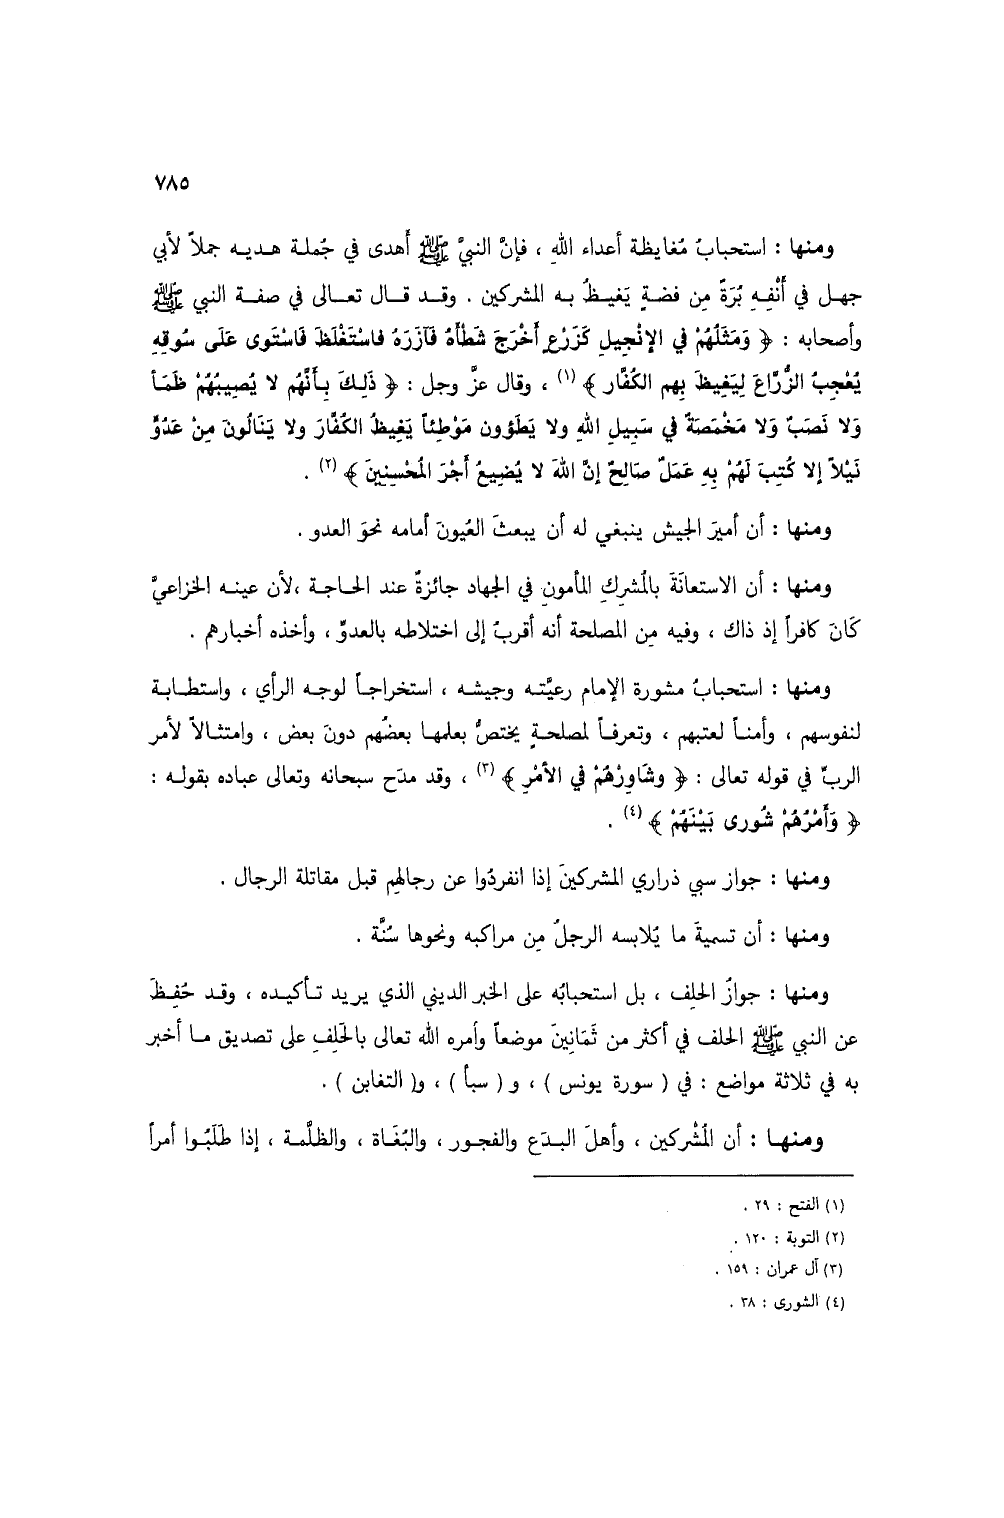 ٧٨٥
ومنها : استحبابُ مُغايظة أعداء اللهِ ، فإنَّ النبيَّ ﷺ أهدى في جُملة هديه جملاً لأبي
جهل في أَنْفِهِ بُرَةً مِن فضةٍ يَغيظُ به المشركين . وقد قال تعالى في صفة النبي ﷺ
وأصحابه : ﴿ وَمَثَلُهُمْ في الإنْجِيلِ كَزَرْعٍ أَخْرَجَ شَطْأَهُ فَآزَرَهُ فاسْتَغْلَظَ فَاسْتَوى عَلَى سُوقِهِ
يُعْجِبُ الزُّرَّاعَ لِيَغِيظَ بِهِم الكُفَّار ﴾ (١) ، وقال عزَّ وجل : ﴿ ذَلِكَ بِأَنَّهُم لا يُصِيبُهُمْ ظَمَأ
وَلا نَصَبٌ وَلا مَخْمَصَةٌ في سَبِيلِ اللهِ ولا يَطَؤون مَوْطِئاً يَغِيظُ الكُفَّارَ ولا يَنَالُونَ مِنْ عَدُوٍّ
نَيْلاً إلا كُتِبَ لَهُمْ بِهِ عَمَلٌ صَالِحٌ إنَّ اللهَ لا يُضِيعُ أَجْرَ المُحْسِنِينَ ﴾ (٢) .
ومنها : أن أميرَ الجيش ينبغي له أن يبعثَ العُيونَ أمامه نحوَ العدو .
ومنها : أن الاستعانَةَ بالمُشركِ المأمونِ في الجهاد جائزةٌ عند الحاجة ،لأن عينه الخزاعيَّ
كَانَ كافراً إذ ذاك ، وفيه مِن المصلحة أنه أقربُ إلى اختلاطه بالعدوِّ ، وأخذه أخبارهم .
ومنها : استحبابُ مشورة الإمام رعيَّته وجيشه ، استخراجاً لوجه الرأي ، واستطابة
لنفوسهم ، وأمناً لعتبهم ، وتعرفاً لمصلحةٍ يختصُّ بعلمها بعضُهم دونَ بعض ، وامتثالاً لأمر
الربِّ في قوله تعالى : ﴿ وشَاوِرْهُمْ في الأَمْرِ ﴾ (٣) ، وقد مدَح سبحانه وتعالى عباده بقوله :
﴿ وَأَمْرُهُمْ شُورى بَيْنَهُمْ ﴾ (٤) .
ومنها : جواز سبي ذراري المشركينَ إذا انفردُوا عن رجالهِم قبل مقاتلة الرجال .
ومنها : أن تسميةَ ما يُلابسه الرجلُ مِن مراكبه ونحوها سُنَّة .
ومنها : جوازُ الحلِف ، بل استحبابُه على الخبر الديني الذي يريد تأكيده ، وقد حُفِظَ
عن النبي ﷺ الحلف في أكثر من ثَمَانِينَ موضعاً وأمره الله تعالى بالحَلِفِ على تصديق ما أخبر
به في ثلاثة مواضع : في ( سورة يونس ) ، و ( سبأ ) ، و( التغابن ) .
ومنها : أن المُشْركين ، وأهلَ البدَع والفجور ، والبُغَاة ، والظلَّمة ، إذا طَلَبُوا أمراً
(١) الفتح : ٢٩ .
(٢) التوبة : ١٢٠ .
(٣) آل عمران : ١٥٩ .
(٤) الشورى : ٣٨ .